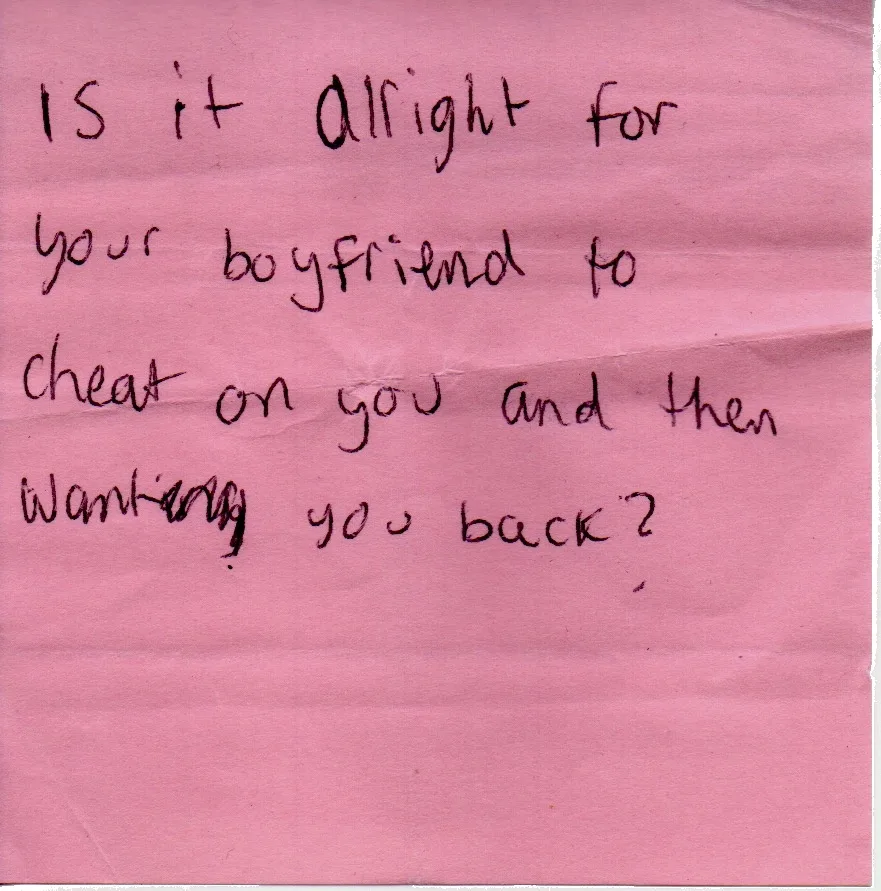 Is it alright for
your boyfriend to
cheat on you and then
wanting you back?